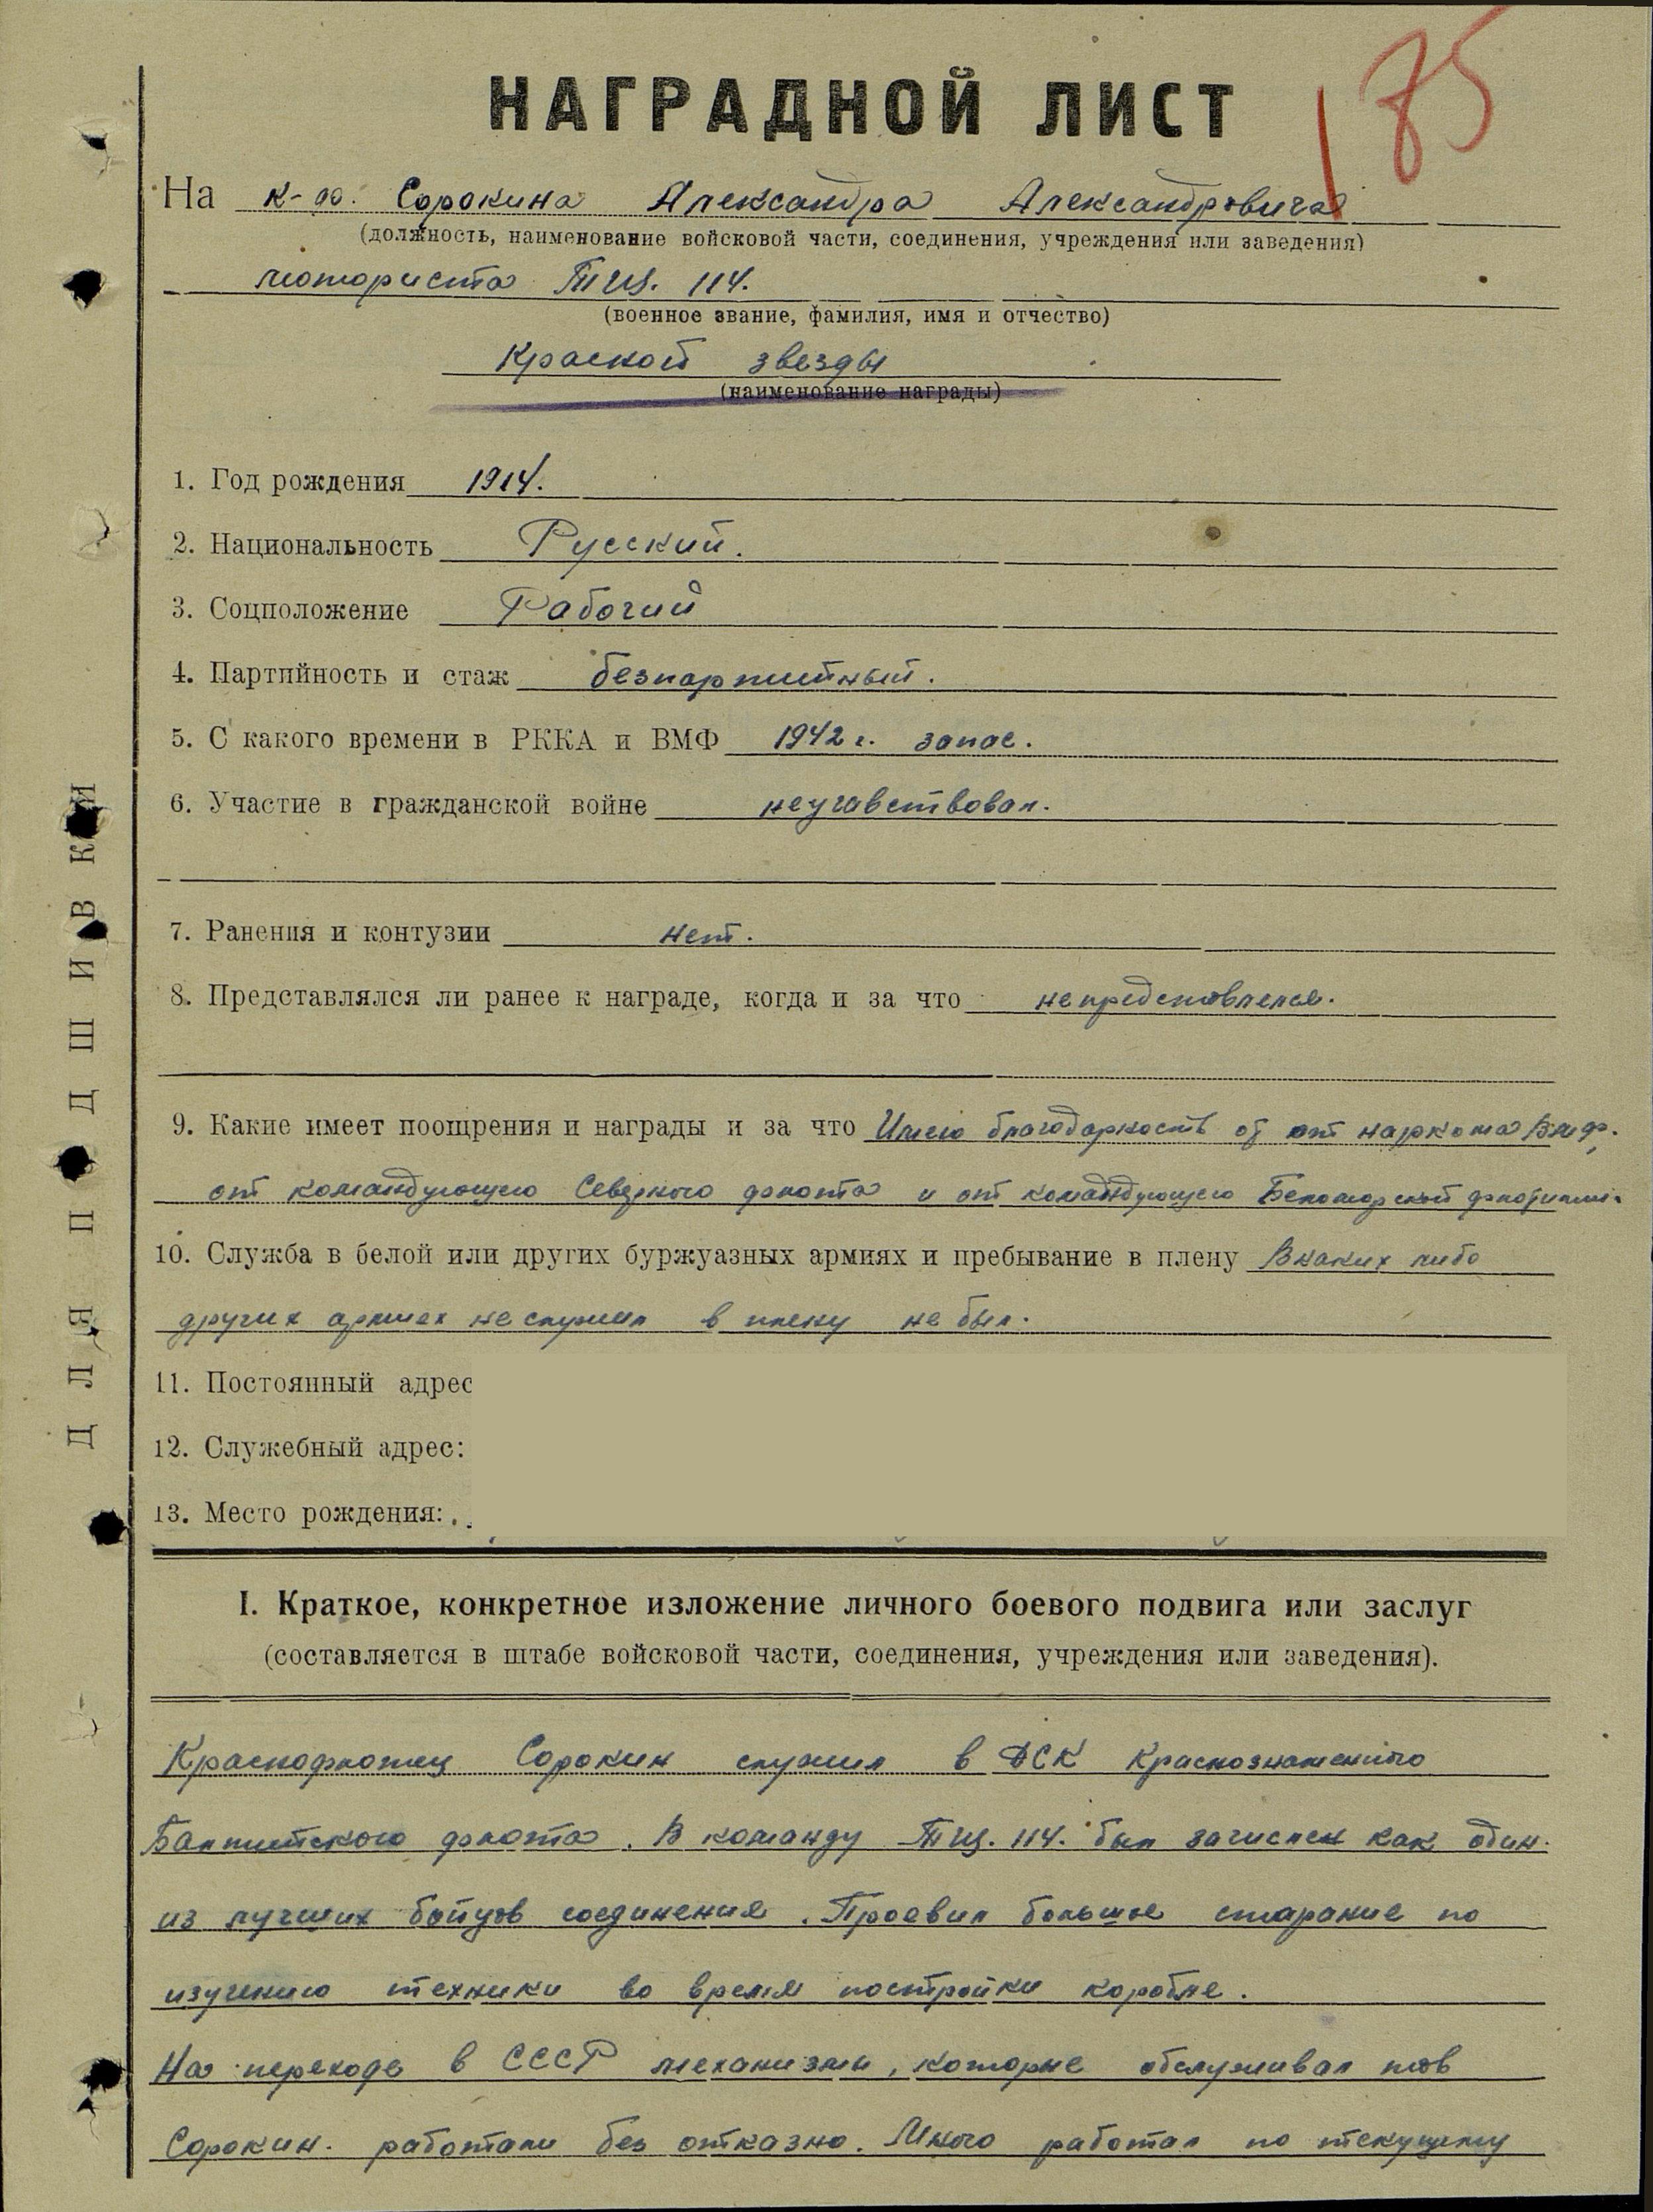 185
НАГРАДНОЙ ЛИСТ
На к-ф. Сорокина Александра Александровича
(должность, наименование войсковой части, соединения, учреждения или заведения)
моториста ТЩ. 114.
(военное звание, фамилия, имя и отчество)
Красной звезды
(наименование награды)
1. Год рождения 1914.
2. Национальность Русский.
3. Соцположение Рабочий
4. Партийность и стаж безпартийный.
5. С какого времени в РККА и ВМФ 1942 г. запас.
6. Участие в гражданской войне неучавствовал.
7. Ранения и контузии нет.
8. Представлялся ли ранее к награде, когда и за что непредставлялся.
9. Какие имеет поощрения и награды и за что Имею благодарность от наркома ВМФ,
от командующего Северного флота и от командующего Беломорской флотилии.
10. Служба в белой или других буржуазных армиях и пребывание в плену В каких либо
других армиях не служил в плену не был.
11. Постоянный адрес
12. Служебный адрес:
13. Место рождения:
I. Краткое, конкретное изложение личного боевого подвига или заслуг
(составляется в штабе войсковой части, соединения, учреждения или заведения).
Краснофлотец Сорокин служил в ДСК Краснознаменного
Балтийского флота. В команду ТЩ. 114. был зачислен как один
из лучших бойцов соединения. Проевил большое старание по
изучению техники во время постройки корабля.
На переходе в СССР механизмы, которые обслуживал тов
Сорокин. работали без отказно. Много работал по текущему
ДЛЯ ПОДШИВКИ